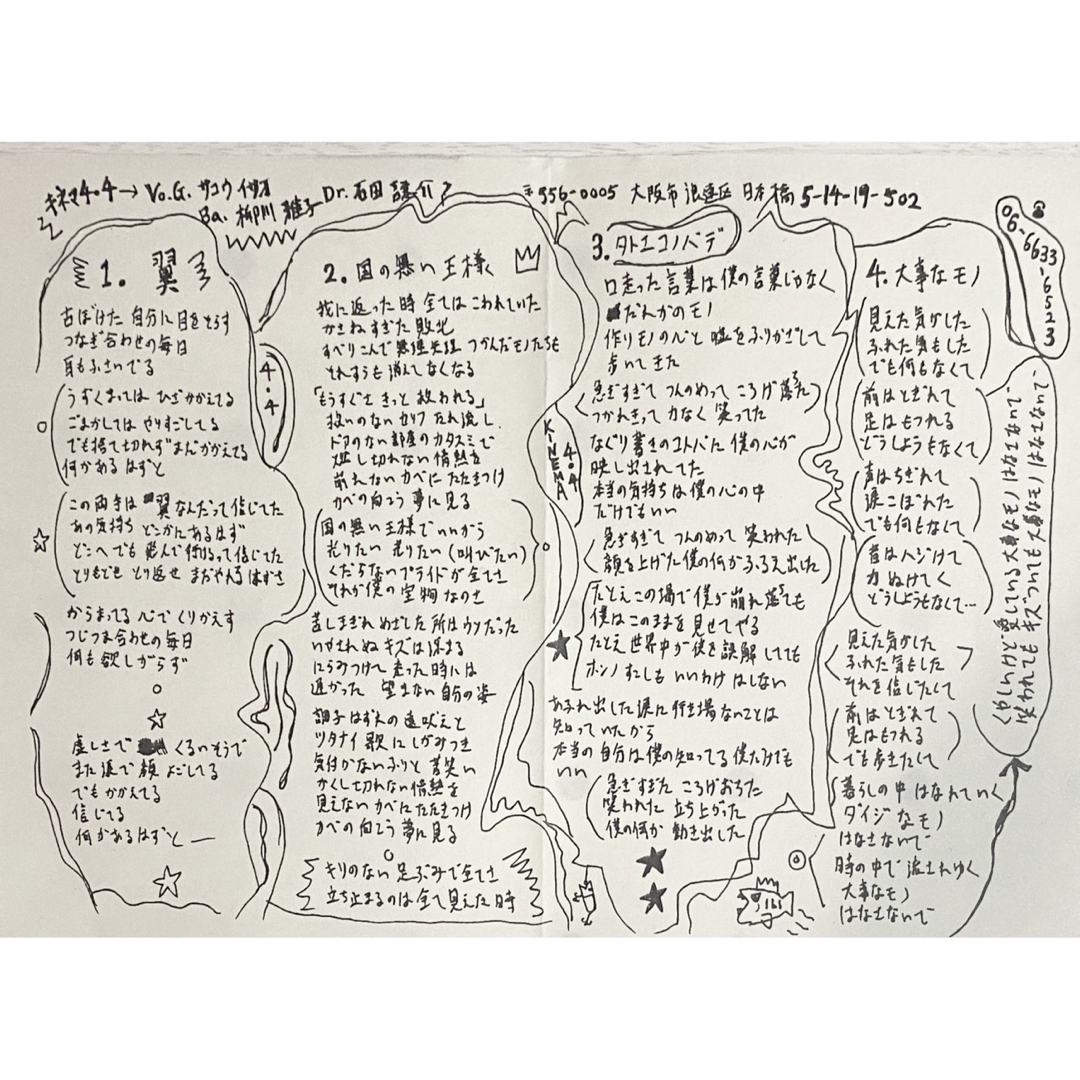 キネマ4.4→ Vo.G. サコウ イサオ
Ba. 柳川 雅子
Dr. 石田 謙介
〒556-0005 大阪市 浪速区 日本橋 5-14-19-502
☎ 06-6633-6523
1. 翼
古ぼけた 自分に 目をそらす
つなぎ合わせの毎日
耳もふさいでる
うずくまっては ひざかかえてる
ごまかしては やりすごしてる
でも捨て切れず まだかかえてる
何かある はずと
この両手は 翼なんだって信じてた
あの気持ち どこかにあるはず
どこへでも 飛んで行けるって信じてた
とりもどせ とり返せ まだやれる はずさ
からまってる 心で くりかえす
つじつま合わせの毎日
何も欲しがらず
虚しさで くるいそうで
また涙で顔 よごしてる
でも かかえてる
信じてる
何かあるはずと ー
4.4
2. 国の無い 王様
我に返った時 全ては こわれていた
かさねすぎた 敗北
すべりこんで 無理矢理 つかんだモノたちも
それすらも 消えてなくなる
「もうすぐさ きっと 救われる」
救いのない セリフ たれ流し
ドアのない 部屋の カタスミで
燃し切れない 情熱を
崩れない かべに たたきつけ
かべの向こう 夢に見る
国の無い 王様で いいから
光りたい 光りたい (叫びたい)
くだらないプライドが 全てさ
それが 僕の 宝物 なのさ
苦しまぎれ めざした 所は ウソだった
いやされぬ キズは 深まる
にらみつけて 走った 時には
遅かった 望まない 自分の姿
調子はずれの 遠吠えと
ツタナイ 歌に しがみつき
気付かないふりと 苦笑い
かくし切れない 情熱を
見えない かべに たたきつけ
かべの向こう 夢に見る
キリのない 足ぶみで 全てさ
立ち止まるのは 全て見えた 時
KINEMA 4.4
3. タトエコノバデ
口走った 言葉は 僕の言葉じゃなく
だれかのモノ
作りモノの心と 嘘を ふりかざして
歩いてきた
急ぎすぎて つんのめって ころげ落ちた
つかれきって 力なく 笑ってた
なぐり書きのコトバに 僕の心が
映し出されてた
本当の気持ちは 僕の心の中
だけでもいい
急ぎすぎて つんのめって 笑われた
顔を上げた 僕の何か ふるえ出した
たとえ この場で 僕が 崩れ落ちても
僕はこのままを 見せてやる
たとえ 世界中が 僕を 誤解 しても
ホンノ すこしも いいわけ はしない
あふれ出した 涙に 行き場ないことは
知っていたから
本当の 自分は 僕の知ってる 僕だけでも
いい
急ぎすぎた ころげおちた
笑われた 立ち上がった
僕の何か 動き出した
4. 大事なモノ
見えた 気がした
ふれた 気もした
でも何もなくて
前は とぎれて
足は もつれる
どうしようもなくて
声は ちぎれて
涙 こぼれた
でも何もなくて
音は ハジけて
力 ぬけてく
どうしようもなくて…
見えた 気がした
ふれた 気もした
それを 信じたくて
前は とぎれて
足は もつれる
でも 歩きたくて
暮らしの中 はなれていく
ダイジ なモノ
はなさないで
時の中で 流されゆく
大事なモノ
はなさないで
くやしいけど 愛している 大事なモノ はなさないで
笑われても キズついても 大事なモノ はなさないで